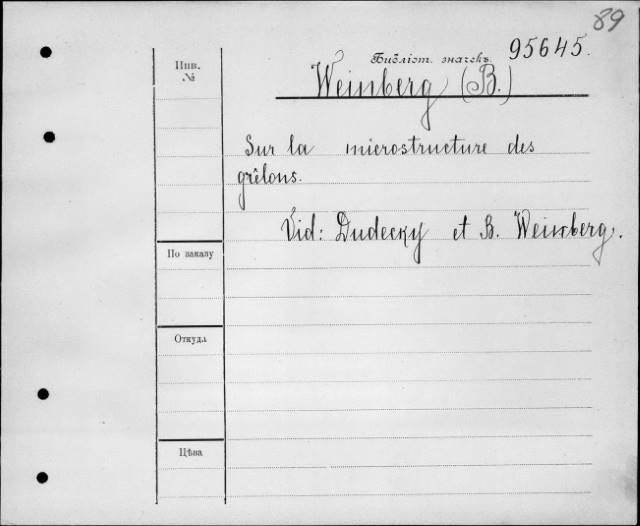 89
Библіот. значекъ 95645.
Инв.
№
Weinberg (B.)
Sur la microstructure des
grêlons.
Vid: Dudecky et B. Weinberg.
По заказу
Откуда
Цѣна